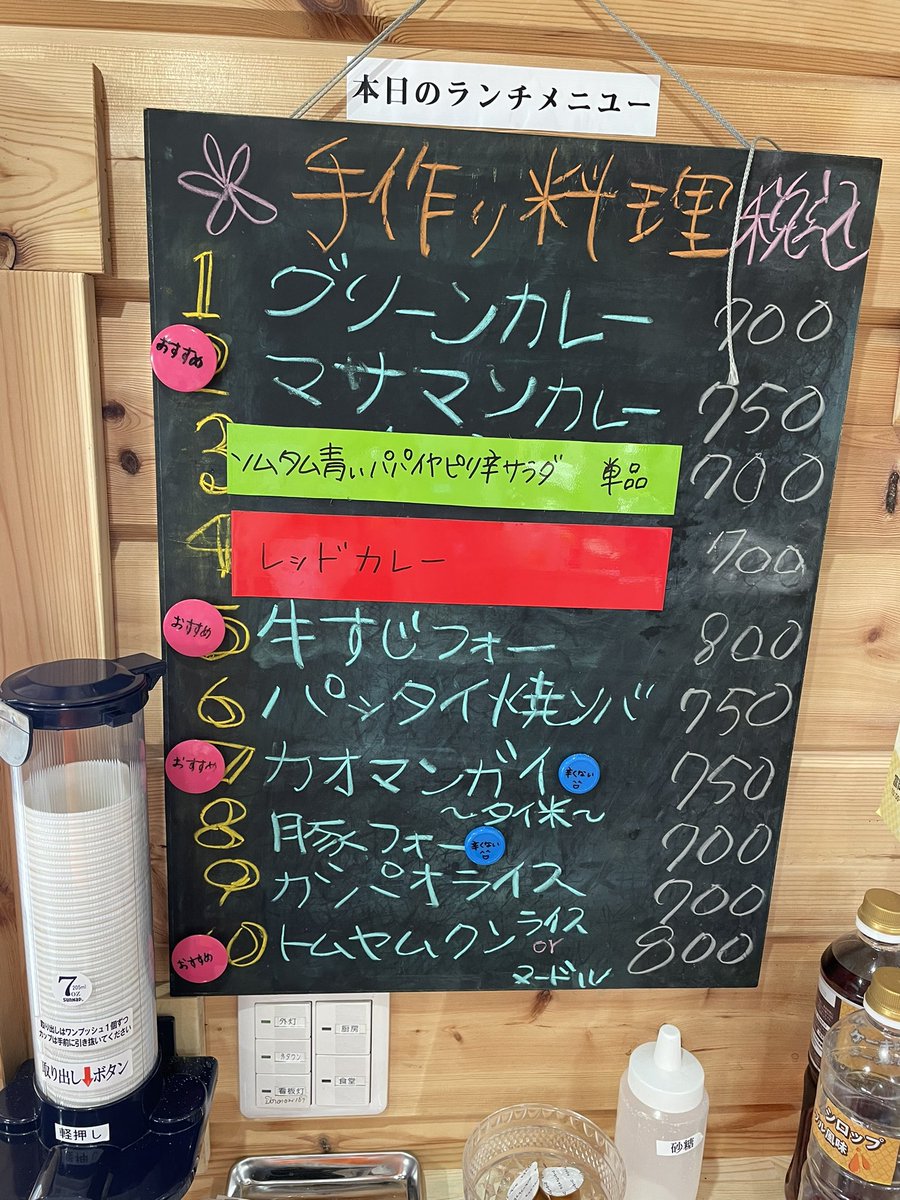 本日のランチメニュー
手作り料理 税込
1 グリーンカレー 700
おすすめ マサマンカレー 750
3 ソムタム青いパパイヤピリ辛サラダ 単品 700
4 レッドカレー 700
おすすめ 5 牛すじフォー 800
6 パッタイ焼ソバ 750
おすすめ 7 カオマンガイ 辛くない 750
〜タイ米〜
8 豚フォー 辛くない 700
9 ガパオライス 700
おすすめ 10 トムヤムクン ライス or ヌードル 800
7oz 205ml
SUNNAP
取り出しはワンプッシュ1個ずつ
カップは手前に引き抜いてください
取り出しボタン
軽押し
外灯
厨房
看板灯
食堂
砂糖
シロップ